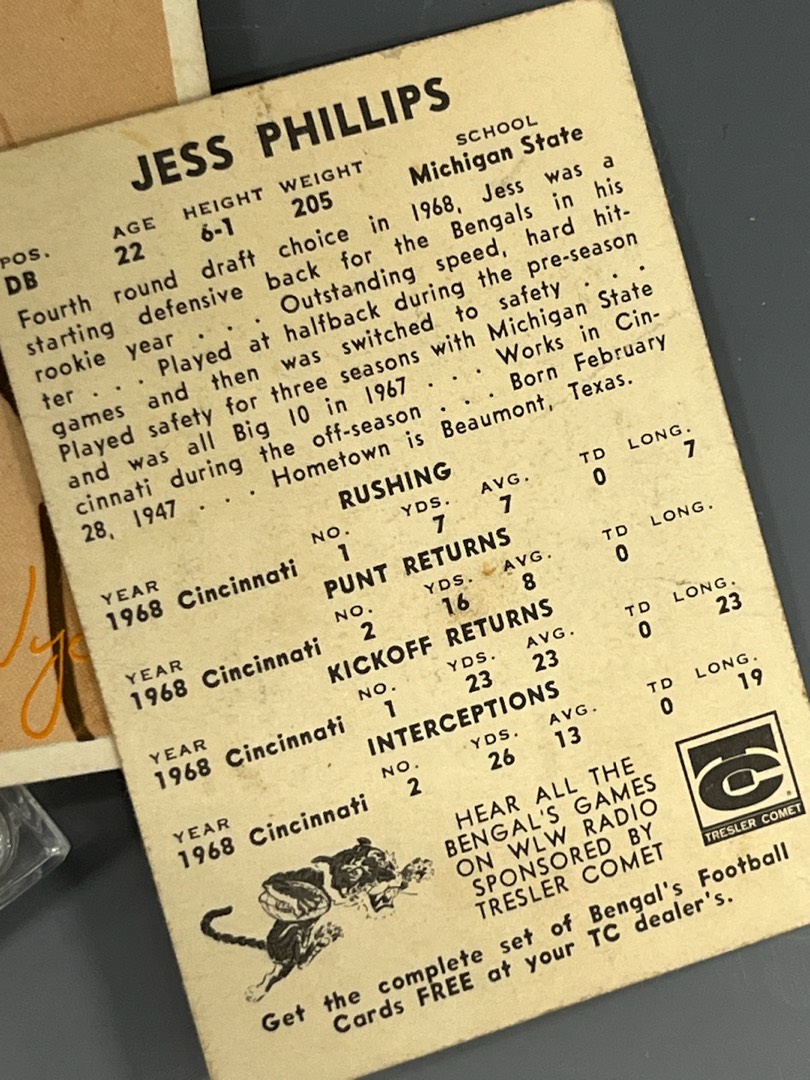 JESS PHILLIPS
POS. AGE HEIGHT WEIGHT SCHOOL
DB 22 6-1 205 Michigan State
Fourth round draft choice in 1968, Jess was a
starting defensive back for the Bengals in his
rookie year . . . Outstanding speed, hard hit-
ter . . . Played at halfback during the pre-season
games and then was switched to safety . . .
Played safety for three seasons with Michigan State
and was all Big 10 in 1967 . . . Works in Cin-
cinnati during the off-season . . . Born February
28, 1947 . . . Hometown is Beaumont, Texas.
RUSHING
YEAR NO. YDS. AVG. TD LONG.
1968 Cincinnati 1 7 7 0 7
PUNT RETURNS
YEAR NO. YDS. AVG. TD LONG.
1968 Cincinnati 2 16 8 0
KICKOFF RETURNS
YEAR NO. YDS. AVG. TD LONG.
1968 Cincinnati 1 23 23 0 23
INTERCEPTIONS
YEAR NO. YDS. AVG. TD LONG.
1968 Cincinnati 2 26 13 0 19
HEAR ALL THE
BENGAL'S GAMES
ON WLW RADIO
SPONSORED BY
TRESLER COMET
TC
TRESLER COMET
Get the complete set of Bengal's Football
Cards FREE at your TC dealer's.